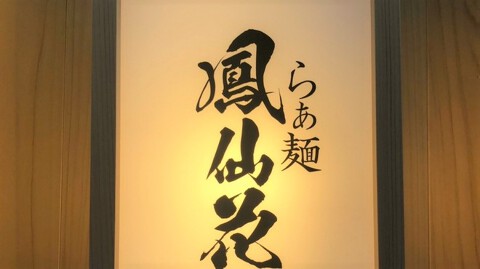 らぁ麺
鳳仙花